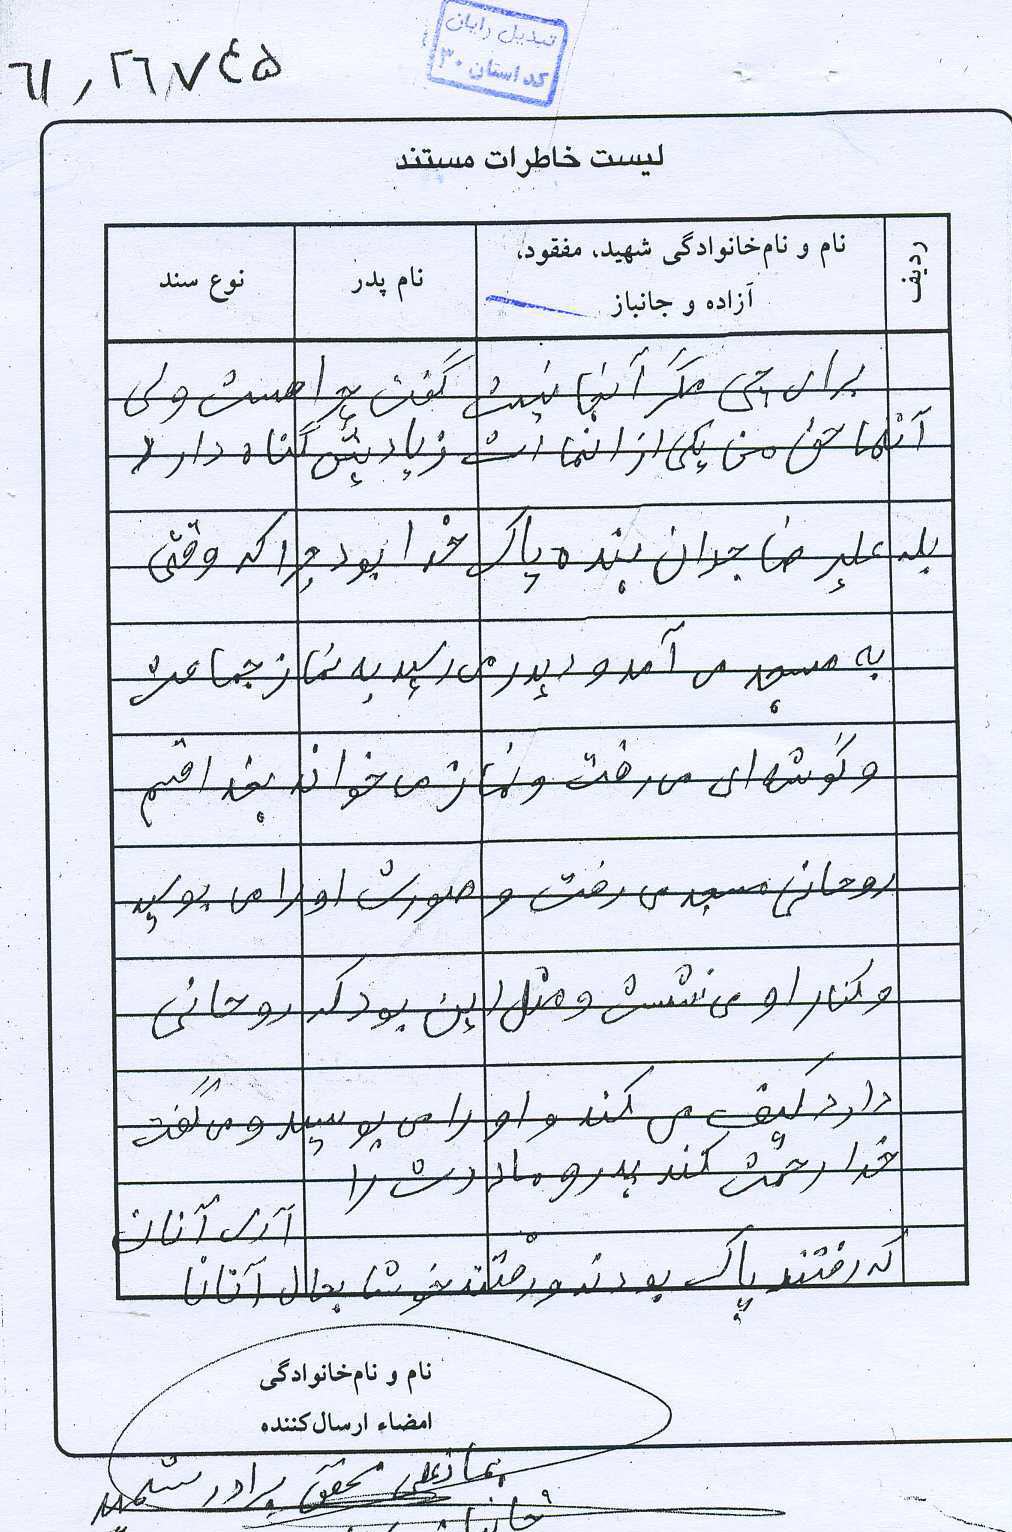 تبدیل رایان
کد استان ۳۰
لیست خاطرات مستند
ردیف
نام و نام‌خانوادگی شهید، مفقود،
آزاده و جانباز
نام پدر
نوع سند
برای چی مگر آنجا نیست گفت چرا هست ولی
آنها حق من یکی از آنها است زیادیش گناه دارد
بله علیرضا جوان بنده پاک خدا بود چرا که وقتی
به مسجد می آمد و دیر می رسید به نماز جماعت
و گوشه ای می رفت و نماز می خواند بخدا قسم
روحانی مسجد می رفت و صورت او را می بوسید
و کنار او می نشست و مثل این بود که روحانی
دارد کیف می کند و او را می بوسید و می گفت
خدا رحمت کند پدر و مادرت را
آری آنان
که رفتند پاک بودند و رفتند خوشا بحال آنان
نام و نام‌خانوادگی
امضاء ارسال‌کننده
محقق برادر شهید